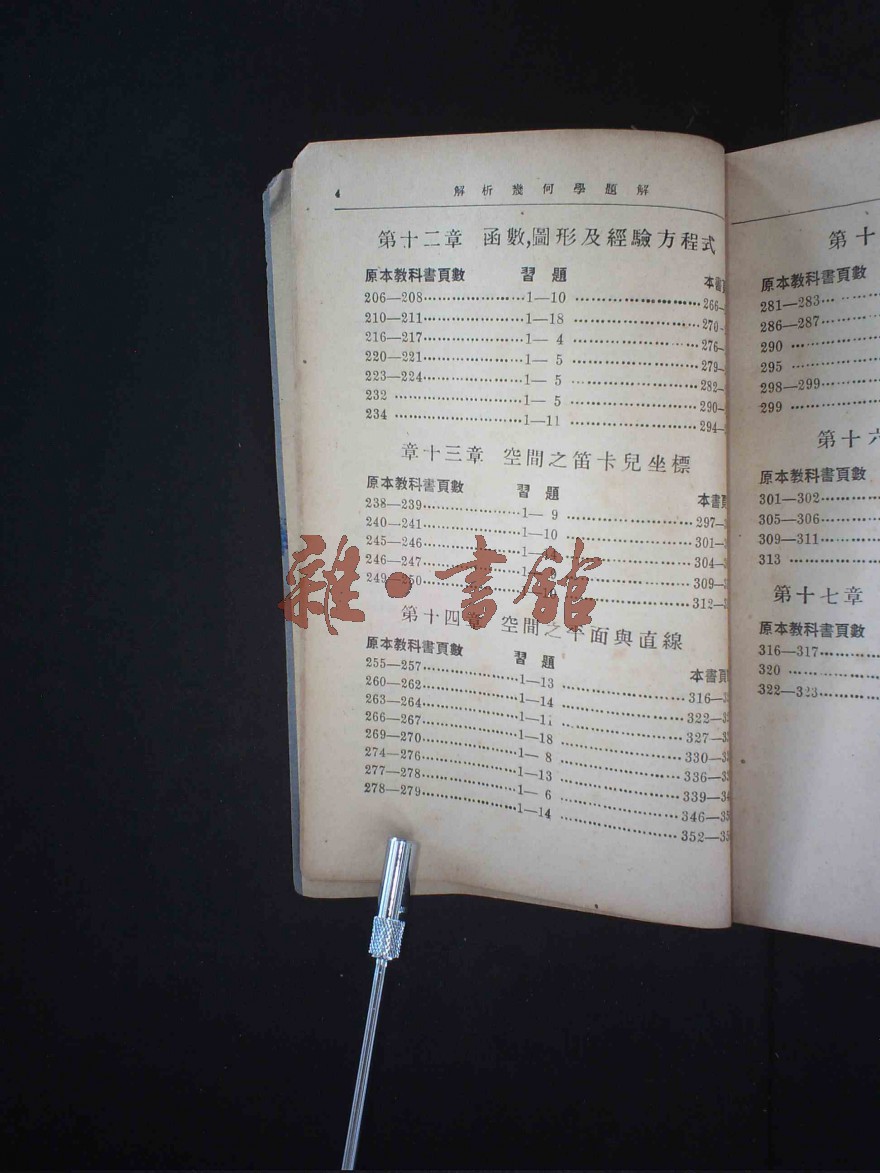 4 解析幾何學題解
第十二章 函數,圖形及經驗方程式
原本教科書頁數 習題 本書頁
206—208 1—10 266—
210—211 1—18 270—
216—217 1—4 276—
220—221 1—5 279—
223—224 1—5 282—
232 1—5 290—
234 1—11 294—
章十三章 空間之笛卡兒坐標
原本教科書頁數 習題 本書頁
238—239 1—9 297—
240—241 1—10 301—
245—246 304—
246—247 309—
249—250 312—
第十四章 空間之平面與直線
原本教科書頁數 習題 本書頁
255—257 1—13 316—
260—262 1—14 322—
263—264 1—11 327—
266—267 1—18 330—
269—270 1—8 336—
274—276 1—13 339—
277—278 1—6 346—
278—279 1—14 352—
雜·書館
第十
原本教科書頁數
281—283
286—287
290
295
298—299
299
第十六
原本教科書頁數
301—302
305—306
309—311
313
第十七章
原本教科書頁數
316—317
320
322—323